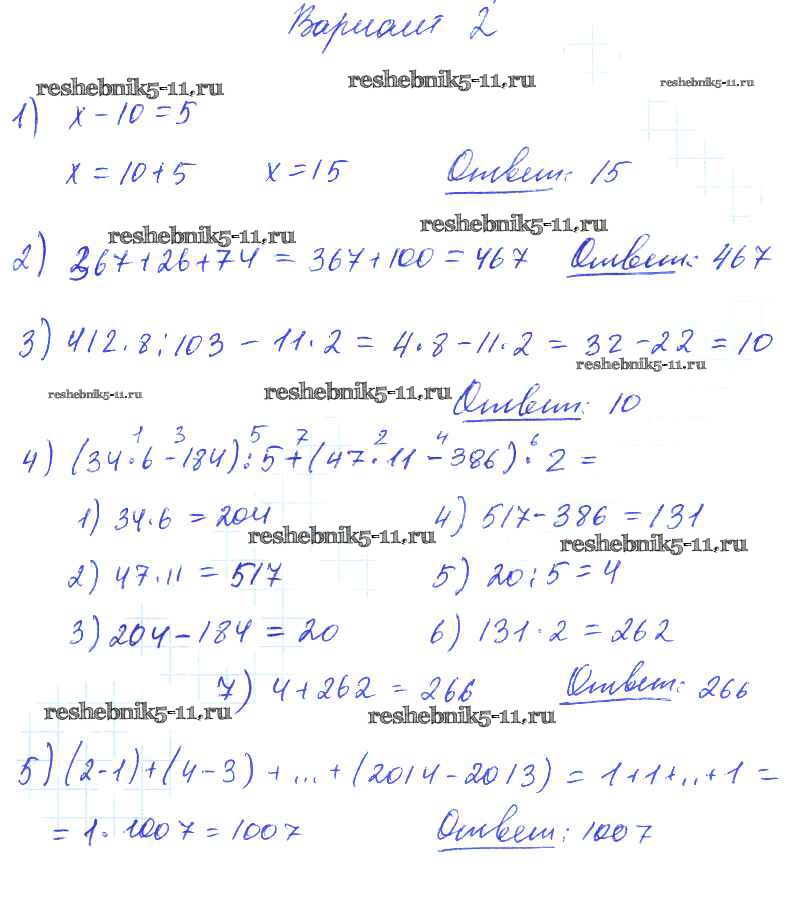 Вариант 2
reshebnik5-11.ru reshebnik5-11.ru reshebnik5-11.ru
1) x - 10 = 5
x = 10 + 5 x = 15 Ответ: 15
reshebnik5-11.ru reshebnik5-11.ru
2) 367 + 26 + 74 = 367 + 100 = 467 Ответ: 467
3) 412 · 8 : 103 - 11 · 2 = 4 · 8 - 11 · 2 = 32 - 22 = 10
reshebnik5-11.ru
reshebnik5-11.ru reshebnik5-11.ru Ответ: 10
1 3 5 7 2 4 6
4) (34 · 6 - 184) : 5 + (47 · 11 - 386) · 2 =
1) 34 · 6 = 204 4) 517 - 386 = 131
reshebnik5-11.ru reshebnik5-11.ru
2) 47 · 11 = 517 5) 20 : 5 = 4
3) 204 - 184 = 20 6) 131 · 2 = 262
7) 4 + 262 = 266 Ответ: 266
reshebnik5-11.ru reshebnik5-11.ru
5) (2-1) + (4-3) + ... + (2014 - 2013) = 1 + 1 + ... + 1 =
= 1 · 1007 = 1007 Ответ: 1007